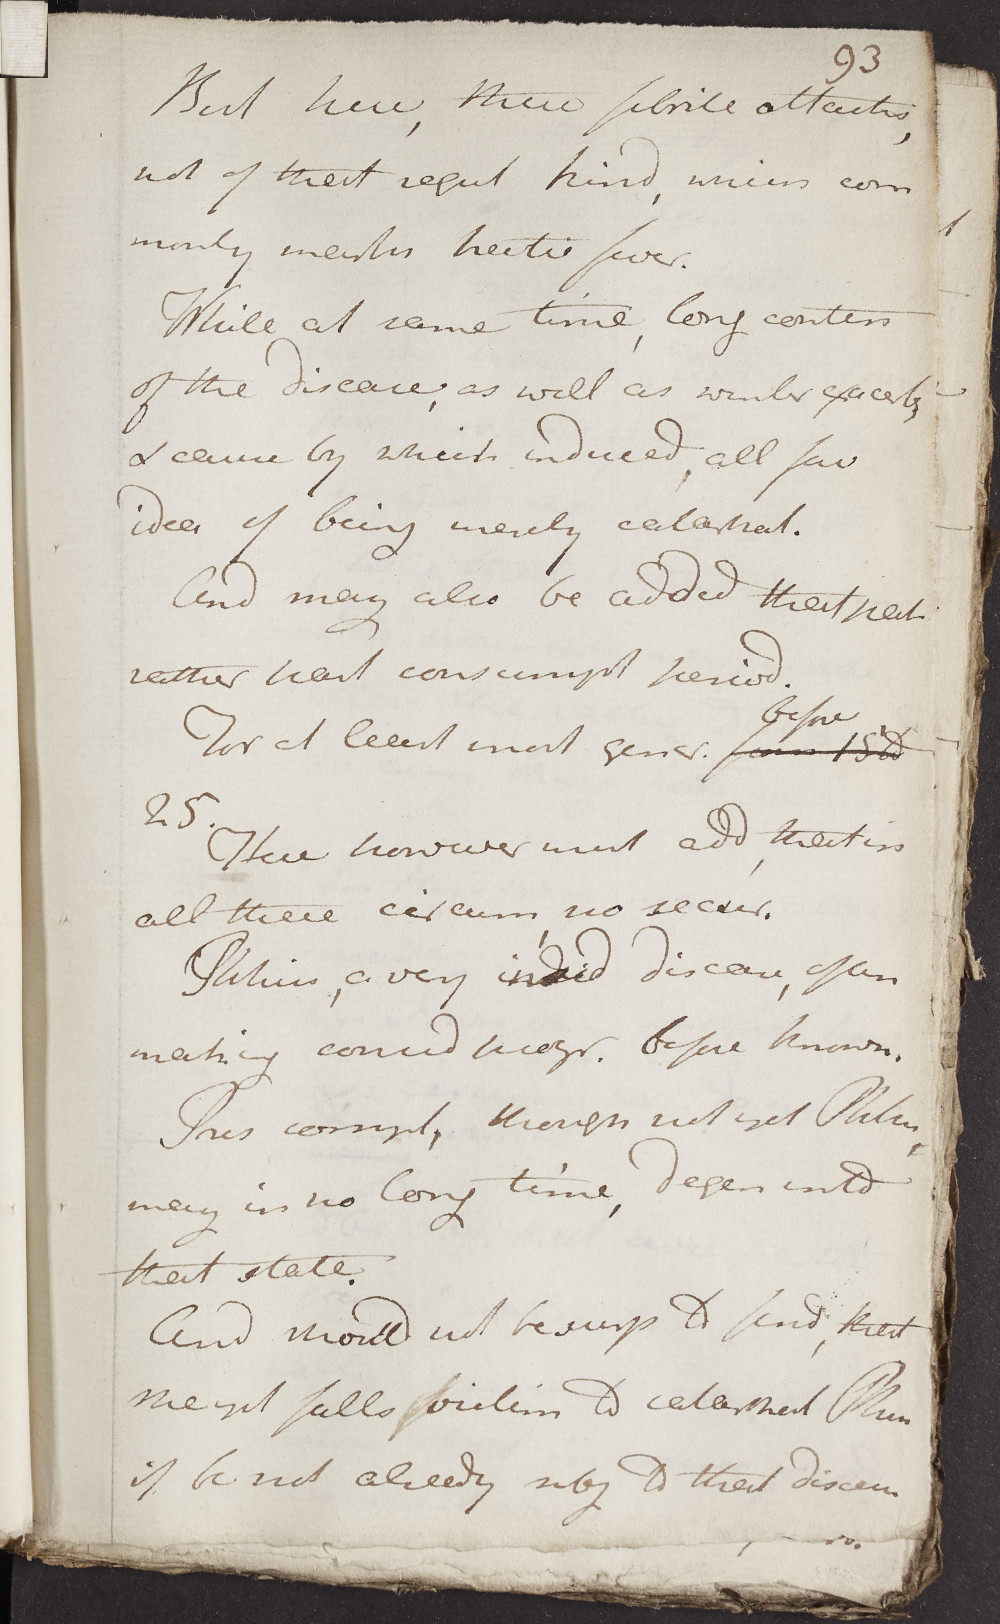 93
But here, these febrile attacks,
not of that regul kind, which com
monly marks hectic fever.
While at same time, long contin
of the disease, as well as winter exacerb,
& cause by which induced, all fav
idea of being merely catarrhal.
And may also be added that pat
rather past consumpt period.
For at least most gener. before
25.
Here however must add, that in
all these circum, no secur.
Phthisis, a very insid disease, often
making consid progr. before known.
Pres compl, though not yet Phthis,
may in no long time, degen into
that state.
And should not be surps to find, that
she yet falls victim to catarrhal Phthis
if be not already subj to that disease.